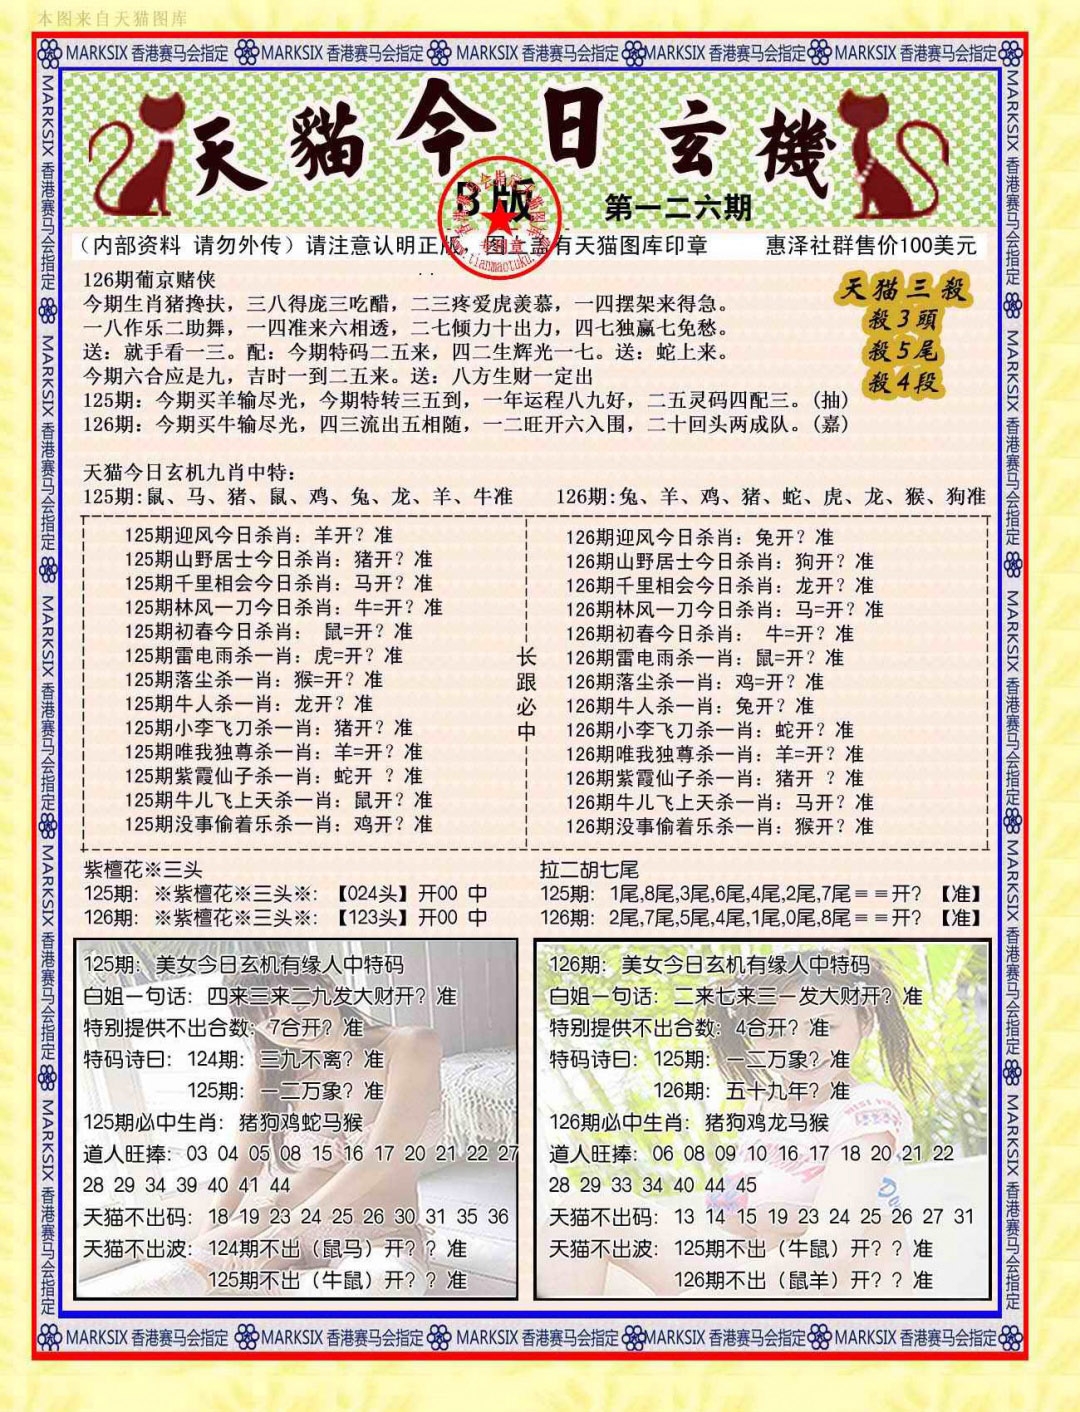 本图来自天猫图库
MARKSIX 香港赛马会指定 MARKSIX 香港赛马会指定 MARKSIX 香港赛马会指定 MARKSIX 香港赛马会指定 MARKSIX 香港赛马会指定
天貓今日玄機
B版 第一二六期
（内部资料 请勿外传）请注意认明正版，图上盖有天猫图库印章 惠泽社群售价100美元
www.tianmaotuku.com
126期葡京赌侠
今期生肖猪搀扶，三八得庞三吃醋，二三疼爱虎羡慕，一四摆架来得急。
一八作乐二助舞，一四准来六相透，二七倾力十出力，四七独赢七免愁。
送：就手看一三。配：今期特码二五来，四二生辉光一七。送：蛇上来。
今期六合应是九，吉时一到二五来。送：八方生财一定出
125期：今期买羊输尽光，今期特转三五到，一年运程八九好，二五灵码四配三。(抽)
126期：今期买牛输尽光，四三流出五相随，一二旺开六入围，二十回头两成队。(嘉)
天猫三殺
殺3頭
殺5尾
殺4段
天猫今日玄机九肖中特：
125期:鼠、马、猪、鼠、鸡、兔、龙、羊、牛准 126期:兔、羊、鸡、猪、蛇、虎、龙、猴、狗准
125期迎风今日杀肖：羊开？准
125期山野居士今日杀肖：猪开？准
125期千里相会今日杀肖：马开？准
125期林风一刀今日杀肖：牛=开？准
125期初春今日杀肖： 鼠=开？准
125期雷电雨杀一肖：虎=开？准
125期落尘杀一肖：猴=开？准
125期牛人杀一肖：龙开？准
125期小李飞刀杀一肖：猪开？准
125期唯我独尊杀一肖：羊=开？准
125期紫霞仙子杀一肖：蛇开 ？准
125期牛儿飞上天杀一肖：鼠开？准
125期没事偷着乐杀一肖：鸡开？准
长跟必中
126期迎风今日杀肖：兔开？准
126期山野居士今日杀肖：狗开？准
126期千里相会今日杀肖：龙开？准
126期林风一刀今日杀肖：马=开？准
126期初春今日杀肖： 牛=开？准
126期雷电雨杀一肖：鼠=开？准
126期落尘杀一肖：鸡=开？准
126期牛人杀一肖：兔开？准
126期小李飞刀杀一肖：蛇开？准
126期唯我独尊杀一肖：羊=开？准
126期紫霞仙子杀一肖：猪开 ？准
126期牛儿飞上天杀一肖：马开？准
126期没事偷着乐杀一肖：猴开？准
紫檀花※三头
125期：※紫檀花※三头※:【024头】开00 中
126期：※紫檀花※三头※:【123头】开00 中
拉二胡七尾
125期：1尾,8尾,3尾,6尾,4尾,2尾,7尾==开？【准】
126期：2尾,7尾,5尾,4尾,1尾,0尾,8尾==开？【准】
125期：美女今日玄机有缘人中特码
白姐一句话：四来三来二九发大财开？准
特别提供不出合数：7合开？准
特码诗曰：124期：三九不离？准
125期：一二万象？准
125期必中生肖：猪狗鸡蛇马猴
道人旺捧：03 04 05 08 15 16 17 20 21 22 27
28 29 34 39 40 41 44
天猫不出码：18 19 23 24 25 26 30 31 35 36
天猫不出波：124期不出（鼠马）开？？准
125期不出（牛鼠）开？？准
126期：美女今日玄机有缘人中特码
白姐一句话：二来七来三一发大财开？准
特别提供不出合数：4合开？准
特码诗曰：125期：一二万象？准
126期：五十九年？准
126期必中生肖：猪狗鸡龙马猴
道人旺捧：06 08 09 10 16 17 18 20 21 22
28 29 33 34 40 44 45
天猫不出码：13 14 15 19 23 24 25 26 27 31
天猫不出波：125期不出（牛鼠）开？？准
126期不出（鼠羊）开？？准
MARKSIX 香港赛马会指定 MARKSIX 香港赛马会指定 MARKSIX 香港赛马会指定 MARKSIX 香港赛马会指定 MARKSIX 香港赛马会指定